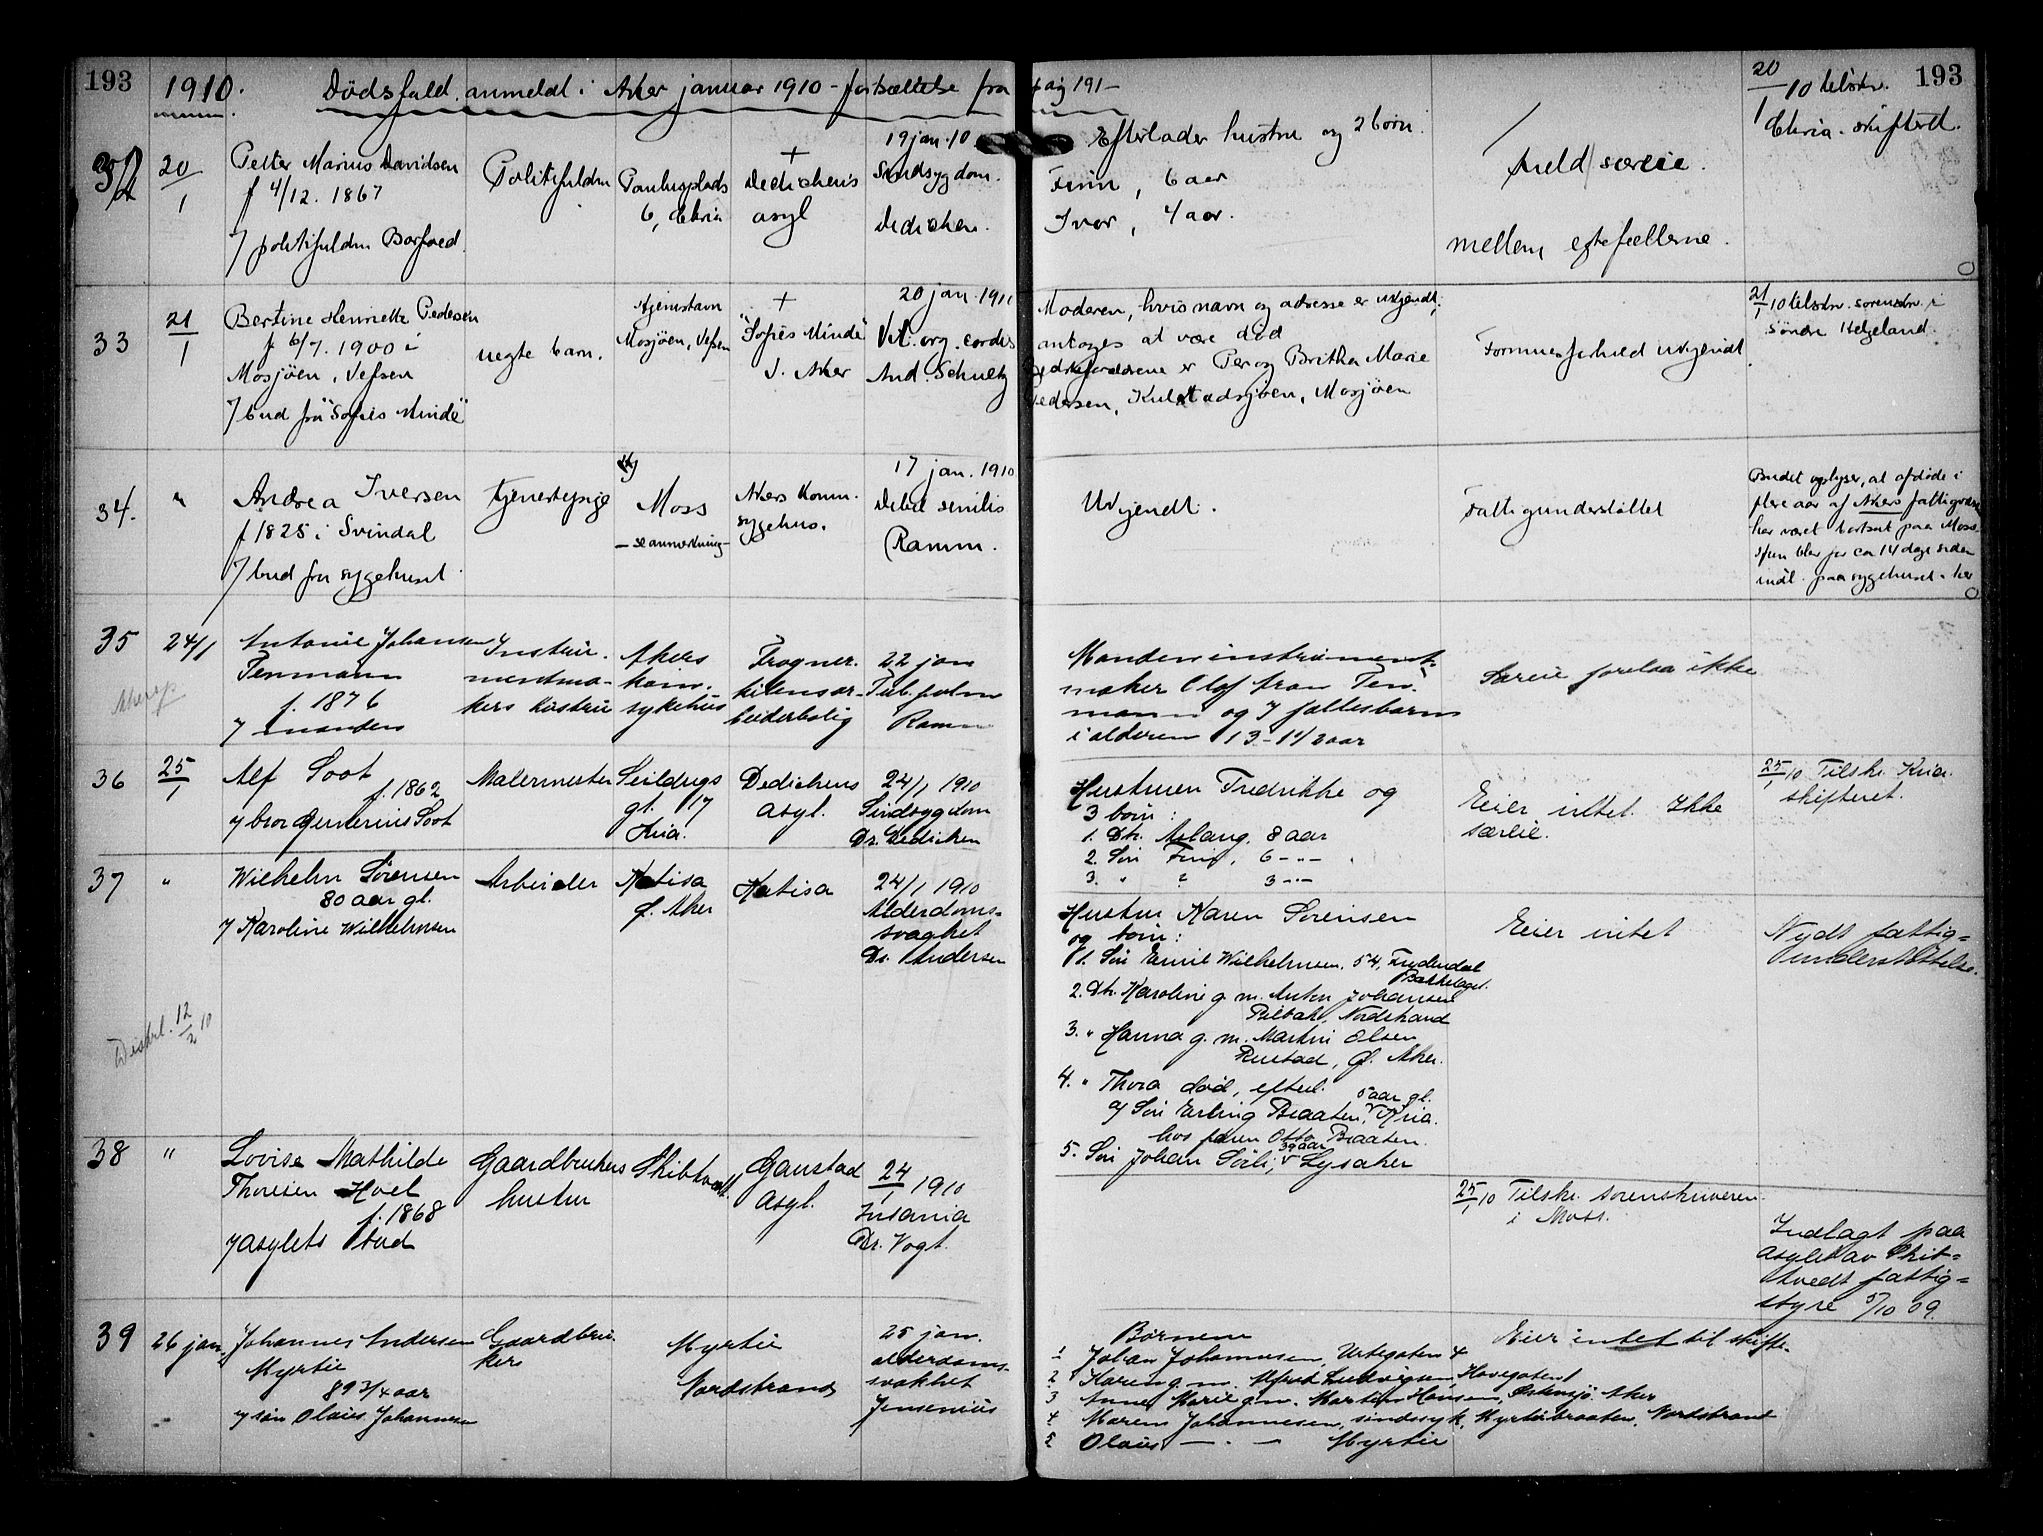 193
1910.
Dödsfald anmeldt i Aker januar 1910 - fortsættelse fra pag 191 -
193
32
20/1
Petter Marius Davidsen
f 4/12. 1867
/ politifuldm Borfoed
Politifuldm
Paulusplads
6, Chria
+
Dedichens
asyl
19 jan. 10
Sindsygdom.
Dedichen.
Efterlader hustru og 2 börn.
Finn, 6 aar
Ivar, 4 aar.
særeie.
mellem efterfællerne.
20/1 10 tilskr.
Chria. skifterett.
33
21/1
Bertine Henriette Pedersen
f 6/7. 1900 i
Mosjöen, Vefsen
/ bud fra "Sofies Minde"
uegte barn.
Hjemstavn
Mosjöen, Vefsen
+
"Sofies Minde"
i Aker
20 jan. 1910
Vit. org. cordis
And. Schultz
Moderen, hvis navn og adresse er ukjendt,
antages at være död
Bedsteforældrene er Per og Britha Marie
Pedersen, Kulstadsjöen, Mosjöen
Formuesforhold ukjendt
21/1 10 tilskr. sorenskr. i
Söndre Helgeland.
34.
"
Andrea Iversen
f 1825 i Svindal
/ bud fra sygehuset
tjenestepige
Moss
- se anmerkning -
Akers komm.
sygehus.
17 jan. 1910
Debil. senilis
(Ramm.
Ukjendt.
Fattigunderstöttet
Budet oplyser, at afdöde i
flere aar af Akers fattigvæsen
har været bortsat paa Moss.
Hun blev for ca 14 dage siden
indl. paa sygehuset her
35
24/1
Antonie Johansen
Tenmann
f. 1876
/ manden
Instru-
mentma-
kers hustru
Akers
kom.
sykehus
Frogner-
kilens ar-
beiderbolig
22 jan
Tub. pulm
Ramm
Manden instrument-
maker Olaf Fran Ten-
mann og 7 fællesbarn
i alderen 13 - 1 1/2 aar
Særeie forelaa ikke
36
25/1
Alf Soot
f. 1862
/ bror Gunerius Soot
Malermester
Seildugs
gt. 17
Kria.
Dedichens
asyl.
24/1 1910
Sindsygdom
Dr. Dedichen
Hustruen Fredrikke og
3 börn:
1. Dtr. Aslaug, 8 aar
2. Sön Finn, 6 - " -
3. " ? 3 - " -
Eier intet. Ikke
særeie.
25/1 10 Tilskr. Kria.
skifteret.
37
"
Wilhelm Sörensen
80 aar gl.
/ Karoline Wilhelmsen
Arbeider
Katisa
Ø. Aker
Katisa
24/1 1910
Alderdoms-
svaghet
Dr. Andersen
Hustru Karen Sörensen
og börn:
1. Sön Emil Wilhelmsen, 54, Frydendal
Bækkelaget.
2. Dtr. Karoline g. m. Anton Johansen
Nordstrand
3. " Hanna g. m. Martin Olsen
Rustad, Ø. Aker.
4. " Thora död, efterl.
5 aar gl.
a/ Sön Erling Braaten, Kria.
hos faren Otto Braaten.
39 aar
5. Sön Johan Sörli, Lysaker
Eier intet
Nydt fattig-
understöttelse.
12/2 10
38
"
Lovise Mathilde
Thoresen Hoel
f. 1868
/ asylets bud
Gaardbrukers
hustru
Skibtvedt
Gaustad
asyl.
24/1 1910
Insania
Dr. Vogt.
25/1 10 Tilskr. sorenskriveren
i Moss.
Indlagt paa
asylet av Skit-
tvedt fattig-
styre 5/10 09.
39
26 jan.
Johannes Andersen
Myrtie
89 3/4 aar
/ sön Olaus Johannesen
Gaardbru-
ker
Myrtie
Nordstrand
25 jan.
alderdoms-
svakhet
Jensenius
Börnene
1 Johan Johannesen, Urtegaten 4
2 Karen g. m. Alfred Ludvigsen, Havegaten 1
3 Anne Marie g. m. Martin Hansen, Østensjö Aker
4 Maren Johannesen, sindssyk, Myrtiebraaten, Nordstrand
5 Olaus - " - Myrtie
Eier intet til skifte.